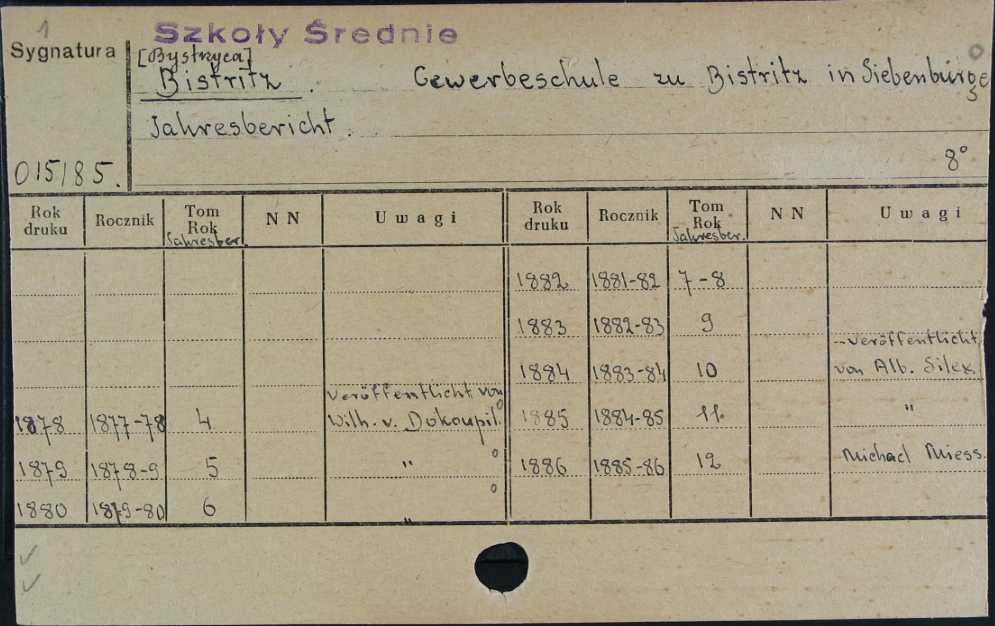 1
Szkoły Średnie
Sygnatura
[Bystryca]
Bistritz. Gewerbeschule zu Bistritz in Siebenbürge
Jahresbericht.
015/85.
8°
Rok druku Rocznik Tom Rok Jahresber. NN Uwagi Rok druku Rocznik Tom Rok Jahresber. NN Uwagi
1882 1881-82 7-8
1883 1882-83 9
1884 1883-84 10 veröffentlicht von Alb. Silex.
1878 1877-78 4 veröffentlicht von Wilh. v. Dokoupil. 1885 1884-85 11. "
1879 1878-9 5 " 1886 1885-86 12 Michael Miess.
1880 1879-80 6 "